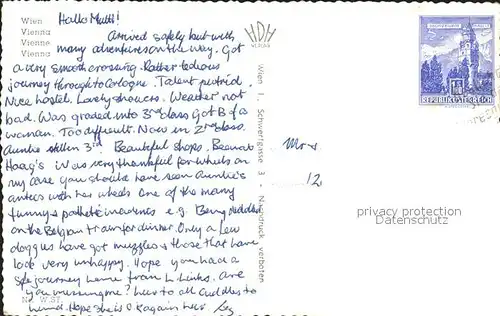 Wien
Vienna
Vienne
Vienna
Hallo Mutti!
Arrived safely but with
many adventures on the way. Got
a very smooth crossing. Rather tedious
journey through to Cologne. Talent putrid.
Nice hostel. Lovely showers. Weather not
bad. Was graded into 3rd class Got B of a
woman. Too difficult. Now in 2nd class.
Auntie still in 3rd. Beautiful shops.
Haag's Was very thankful for wheels on
my case you should have seen Auntie's
antics with her wheels One of the many
funny & pathetic e.g. Being
on the Belgian train for dinner. Only a few
doggies have got muzzles & those that have
look very unhappy. Hope you had a
safe journey home from L. Links. Are
you missing me? Love to all cuddles to
Hope she is O.K again Love
HDH
VERLAG
Wien I, Schwertgasse 3 · Nachdruck verboten
Mrs
12
REPUBLIK ÖSTERREICH
privacy protection
Datenschutz